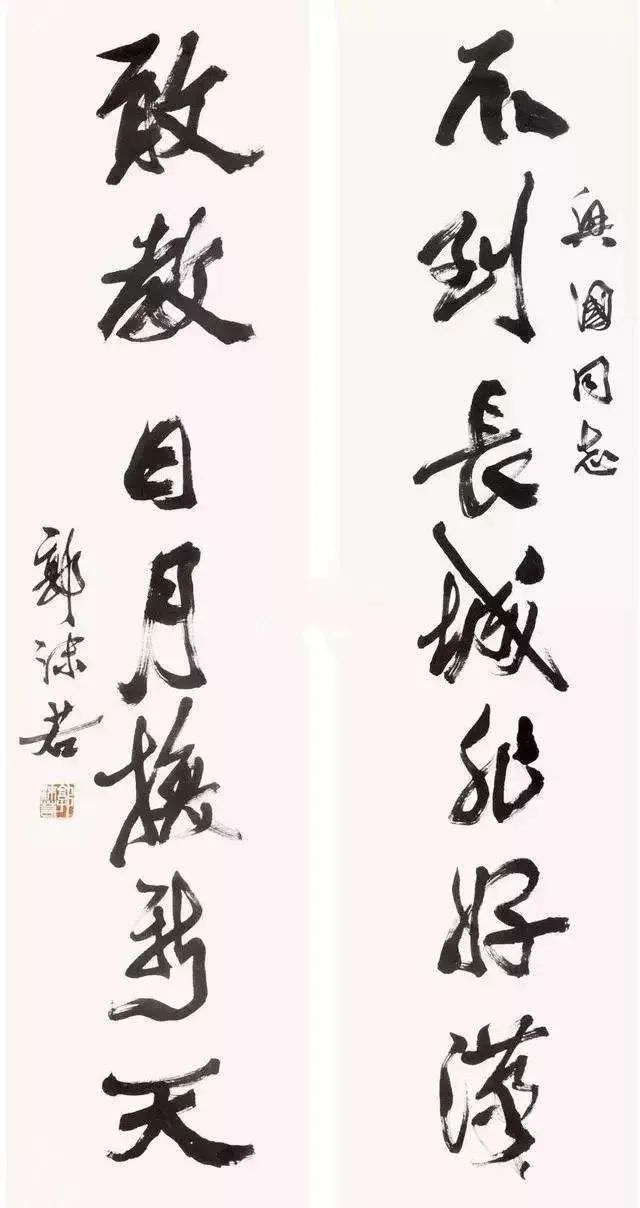 興國同志
不到長城非好漢
敢教日月換新天
郭沫若